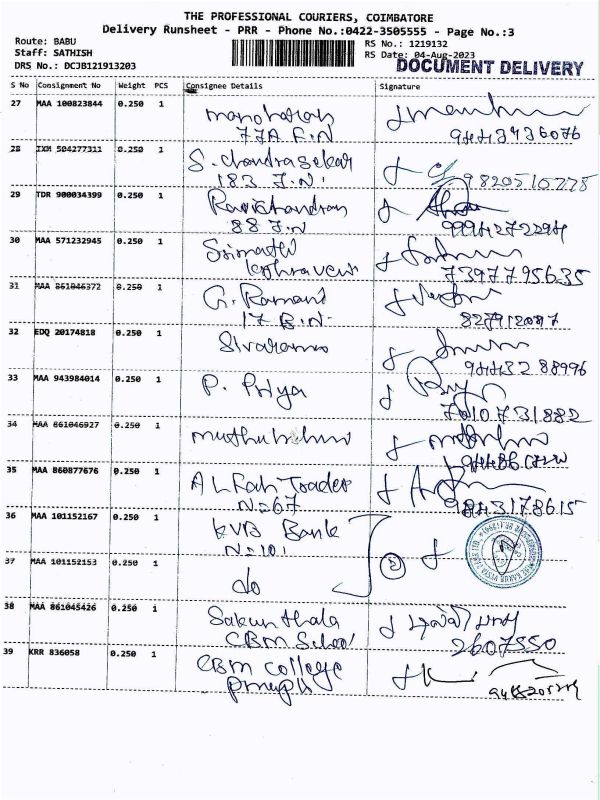 THE PROFESSIONAL COURIERS, COIMBATORE
Delivery Runsheet - PRR - Phone No.:0422-3505555 - Page No.:3
Route: BABU
Staff: SATHISH
DRS No.: DCJB121913203
RS No.: 1219132
RS Date: 04-Aug-2023
DOCUMENT DELIVERY
S No Consignment No Weight PCS Consignee Details Signature
27 MAA 100823844 0.250 1
77A F.N
28 IXM 504277311 0.250 1 S. Chandrasekar
183 F.N. 9820510228
29 TDR 900034399 0.250 1 Ravichandran
88 F.N 9994272294
30 MAA 571232945 0.250 1 Srimathi
7397795635
31 MAA 861046372 0.250 1 G. Ramani
17 B.N.
32 EDQ 20174818 0.250 1 Sivaramo
9443288996
33 MAA 943984014 0.250 1 P. Priya
7010731882
34 MAA 861046927 0.250 1
35 MAA 860877676 0.250 1 Al Fah Trader
N=67 9843178615
36 MAA 101152167 0.250 1 KVB Bank
N=101
37 MAA 101152153 0.250 1 do 2
38 MAA 861045426 0.250 1 Sakunthala
CBM School 2607550
39 KRR 836058 0.250 1 CBM College